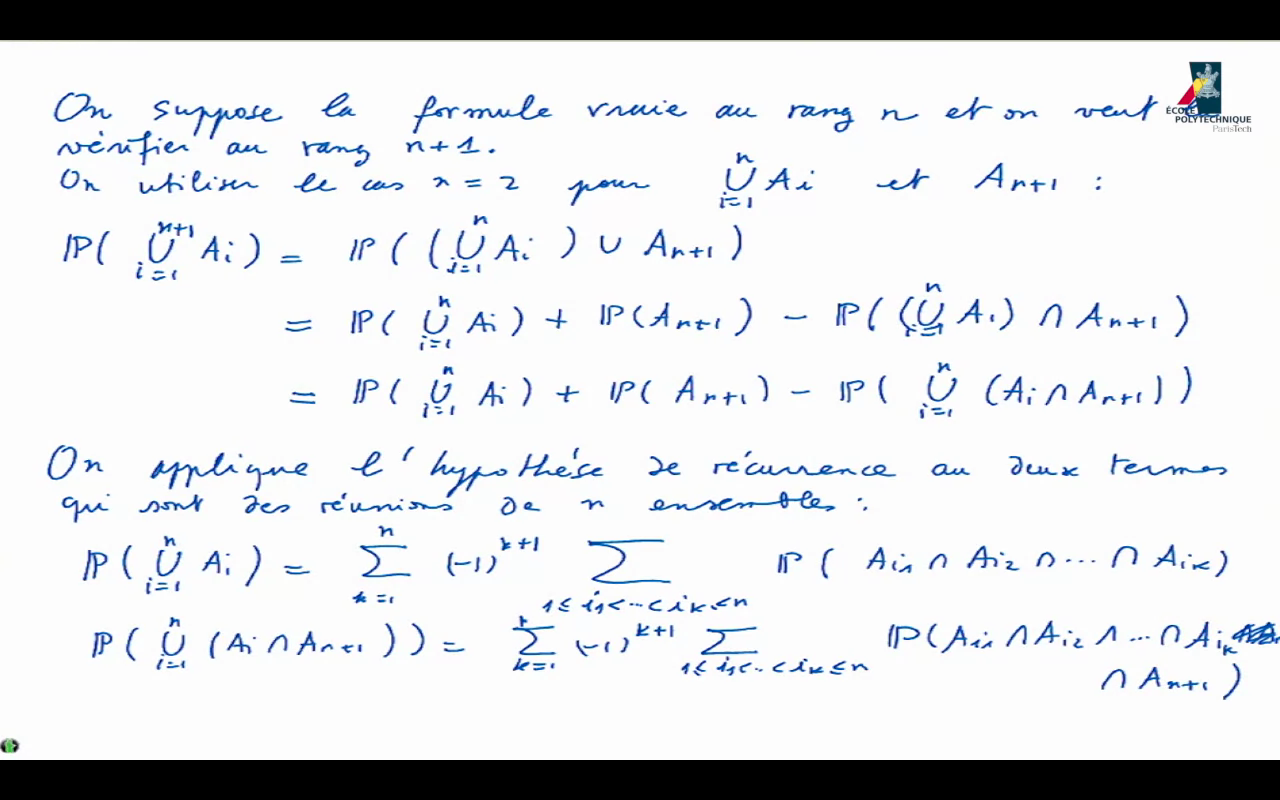 On suppose la formule vraie au rang n et on veut la
vérifier au rang n+1.
On utiliser le cas n = 2 pour ⋃_{i=1}^{n} Ai et An+1 :
ℙ( ⋃_{i=1}^{n+1} Ai ) = ℙ( ( ⋃_{i=1}^{n} Ai ) ∪ An+1 )
= ℙ( ⋃_{i=1}^{n} Ai ) + ℙ( An+1 ) − ℙ( ( ⋃_{i=1}^{n} Ai ) ∩ An+1 )
= ℙ( ⋃_{i=1}^{n} Ai ) + ℙ( An+1 ) − ℙ( ⋃_{i=1}^{n} (Ai ∩ An+1) )
On applique l'hypothése de récurrence au deux termes
qui sont des réunions de n ensembles :
ℙ( ⋃_{i=1}^{n} Ai ) = ∑_{k=1}^{n} (-1)^{k+1} ∑_{1≤i1<...<ik≤n} ℙ( Ai1 ∩ Ai2 ∩ ... ∩ Aik )
ℙ( ⋃_{i=1}^{n} (Ai ∩ An+1) ) = ∑_{k=1}^{n} (-1)^{k+1} ∑_{1≤i1<...<ik≤n} ℙ( Ai1 ∩ Ai2 ∩ ... ∩ Aik
∩ An+1 )
ÉCOLE
POLYTECHNIQUE
ParisTech